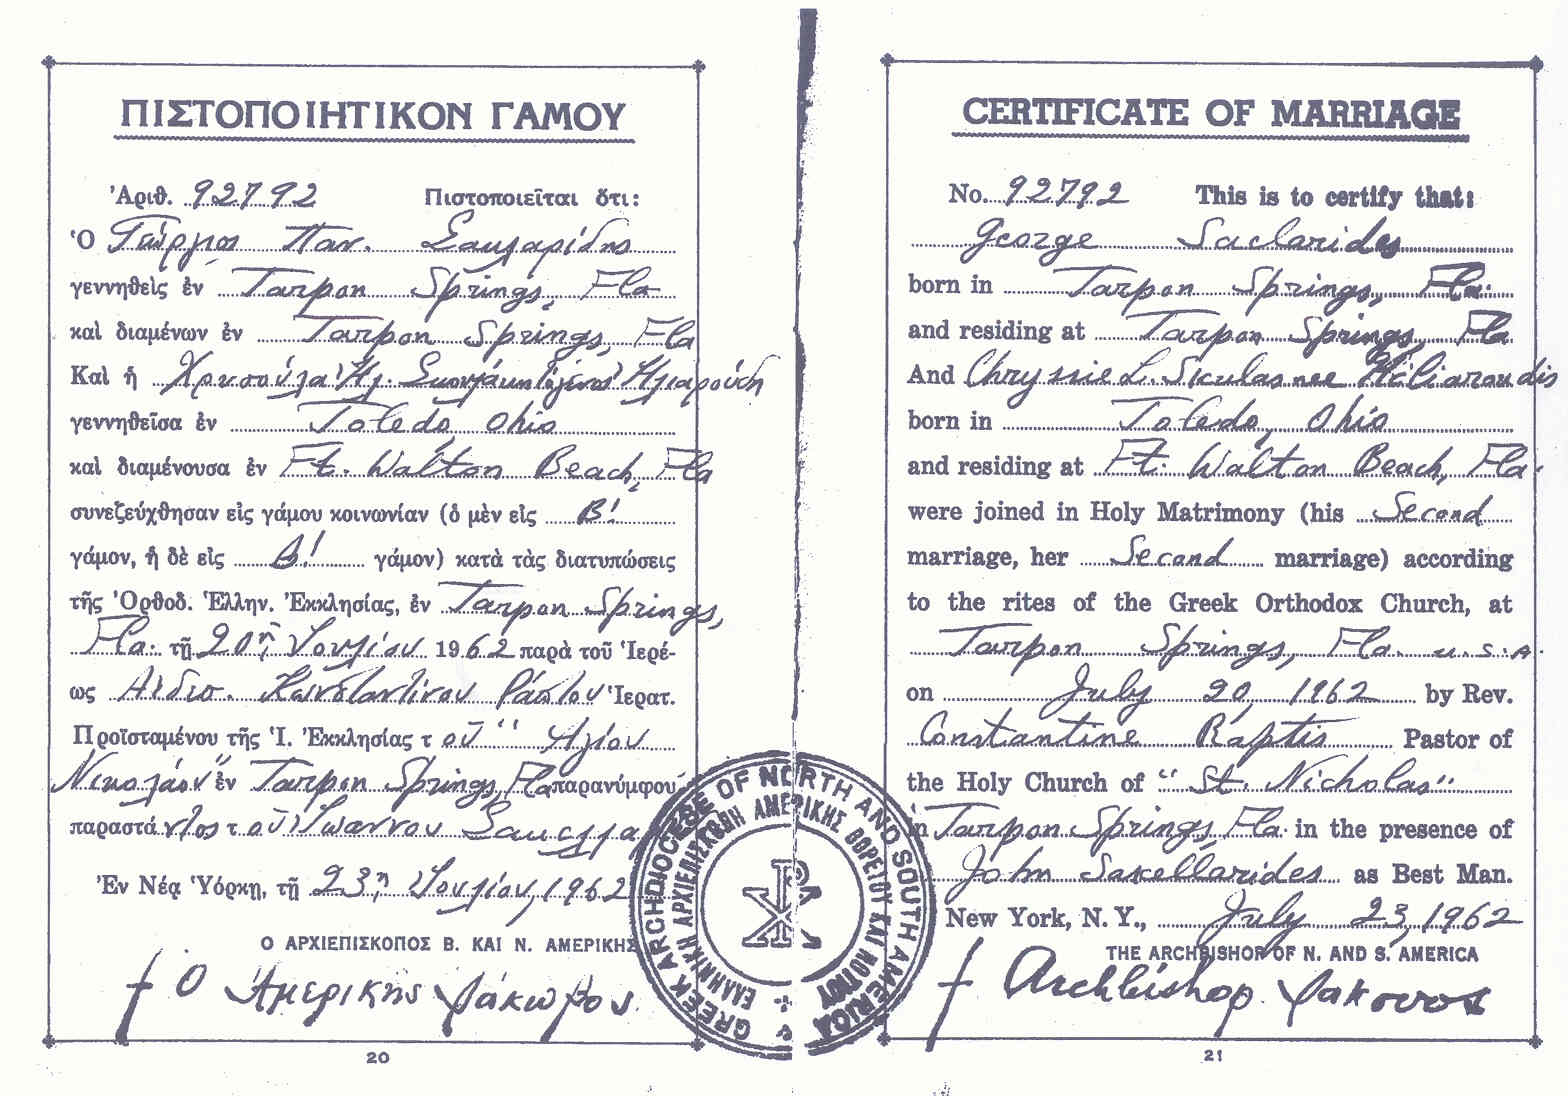 ΠΙΣΤΟΠΟΙΗΤΙΚΟΝ ΓΑΜΟΥ
Ἀριθ. 92792 Πιστοποιεῖται ὅτι:
Ὁ Γεώργιος Παν. Σακλαρίδης
γεννηθεὶς ἐν Tarpon Springs, Fla
καὶ διαμένων ἐν Tarpon Springs, Fla
Καὶ ἡ Χρυσούλα Ἠλ. Ἡλιαρούδη
γεννηθεῖσα ἐν Toledo Ohio
καὶ διαμένουσα ἐν Ft. Walton Beach, Fla
συνεζεύχθησαν εἰς γάμου κοινωνίαν (ὁ μὲν εἰς Β!
γάμον, ἡ δὲ εἰς Β! γάμον) κατὰ τὰς διατυπώσεις
τῆς Ὀρθοδ. Ἑλλην. Ἐκκλησίας, ἐν Tarpon Springs,
Fla. τῇ 20ῃ Ἰουλίου 1962 παρὰ τοῦ Ἱερέ-
ως Αἰδεσ. Κωνσταντίνου Ράπτου Ἱερατ.
Προϊσταμένου τῆς Ἱ. Ἐκκλησίας τοῦ "Ἁγίου
Νικολάου" ἐν Tarpon Springs, Fla παρανύμφου
παραστάντος τοῦ Ἰωάννου
Ἐν Νέᾳ Ὑόρκῃ, τῇ 23ῃ Ἰουλίου, 1962
Ο ΑΡΧΙΕΠΙΣΚΟΠΟΣ Β. ΚΑΙ Ν. ΑΜΕΡΙΚΗΣ
† Ὁ Ἀμερικῆς Ἰάκωβος
20
CERTIFICATE OF MARRIAGE
No. 92792 This is to certify that:
George Saclarides
born in Tarpon Springs, Fla.
and residing at Tarpon Springs, Fla
And Chryssie L. Skulas nee Heliaroudis
born in Toledo, Ohio
and residing at Ft. Walton Beach, Fla.
were joined in Holy Matrimony (his Second
marriage, her Second marriage) according
to the rites of the Greek Orthodox Church, at
Tarpon Springs, Fla. U.S.A.
on July 20, 1962 by Rev.
Constantine Raptis Pastor of
the Holy Church of "St. Nicholas"
in Tarpon Springs, Fla. in the presence of
John Sakellarides as Best Man.
New York, N. Y., July 23, 1962
THE ARCHBISHOP OF N. AND S. AMERICA
† Archbishop Ιακοvος
21
GREEK ARCHDIOCESE OF NORTH AND SOUTH AMERICA
ΕΛΛΗΝΙΚΗ ΑΡΧΙΕΠΙΣΚΟΠΗ ΑΜΕΡΙΚΗΣ ΒΟΡΕΙΟΥ ΚΑΙ ΝΟΤΙΟΥ